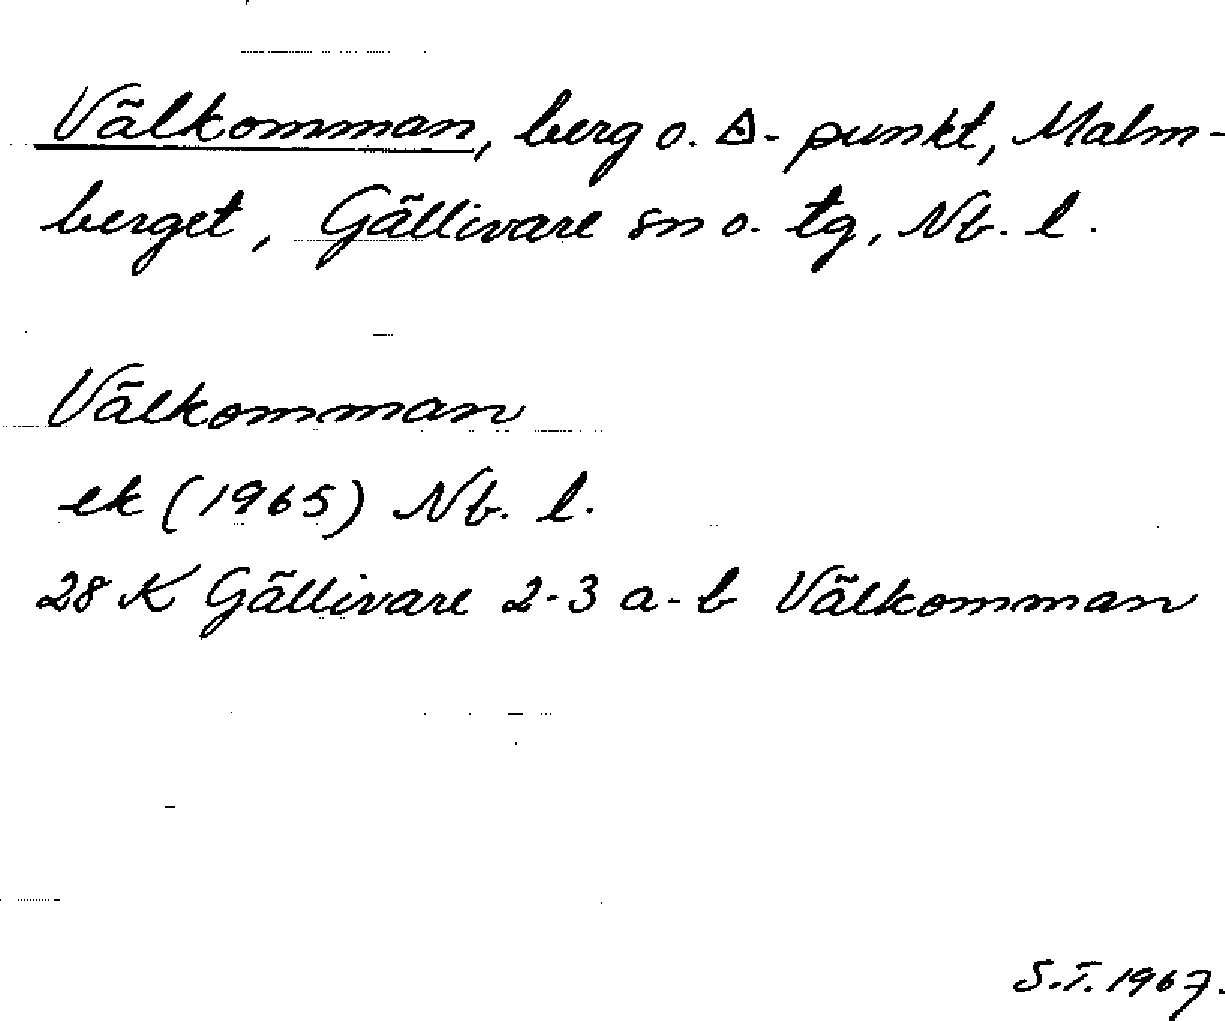 Välkomman, berg o. ◬-punkt, Malm-
berget, Gällivare sn o. tg, Nb. l.
Välkomman
ek (1965) Nb. l.
28 K Gällivare 2-3 a-b Välkomman
S.T. 1967.